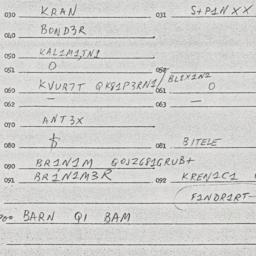 030 KRAN 031 S+P1NXX
040 BOND3R
050 KAL1M1,TN1
051 O 052
060 KVUR7T QK81P3RN1/ BL1X1N2
061 O
062 — 063 —
070 ANT3X
080 $ 081 31TELE
090 BR1N1M GOJ2681GRUB+
091 BR1N1M3R 092 KREN1C1
F1NDR1RT-
BARN Q1 BAM